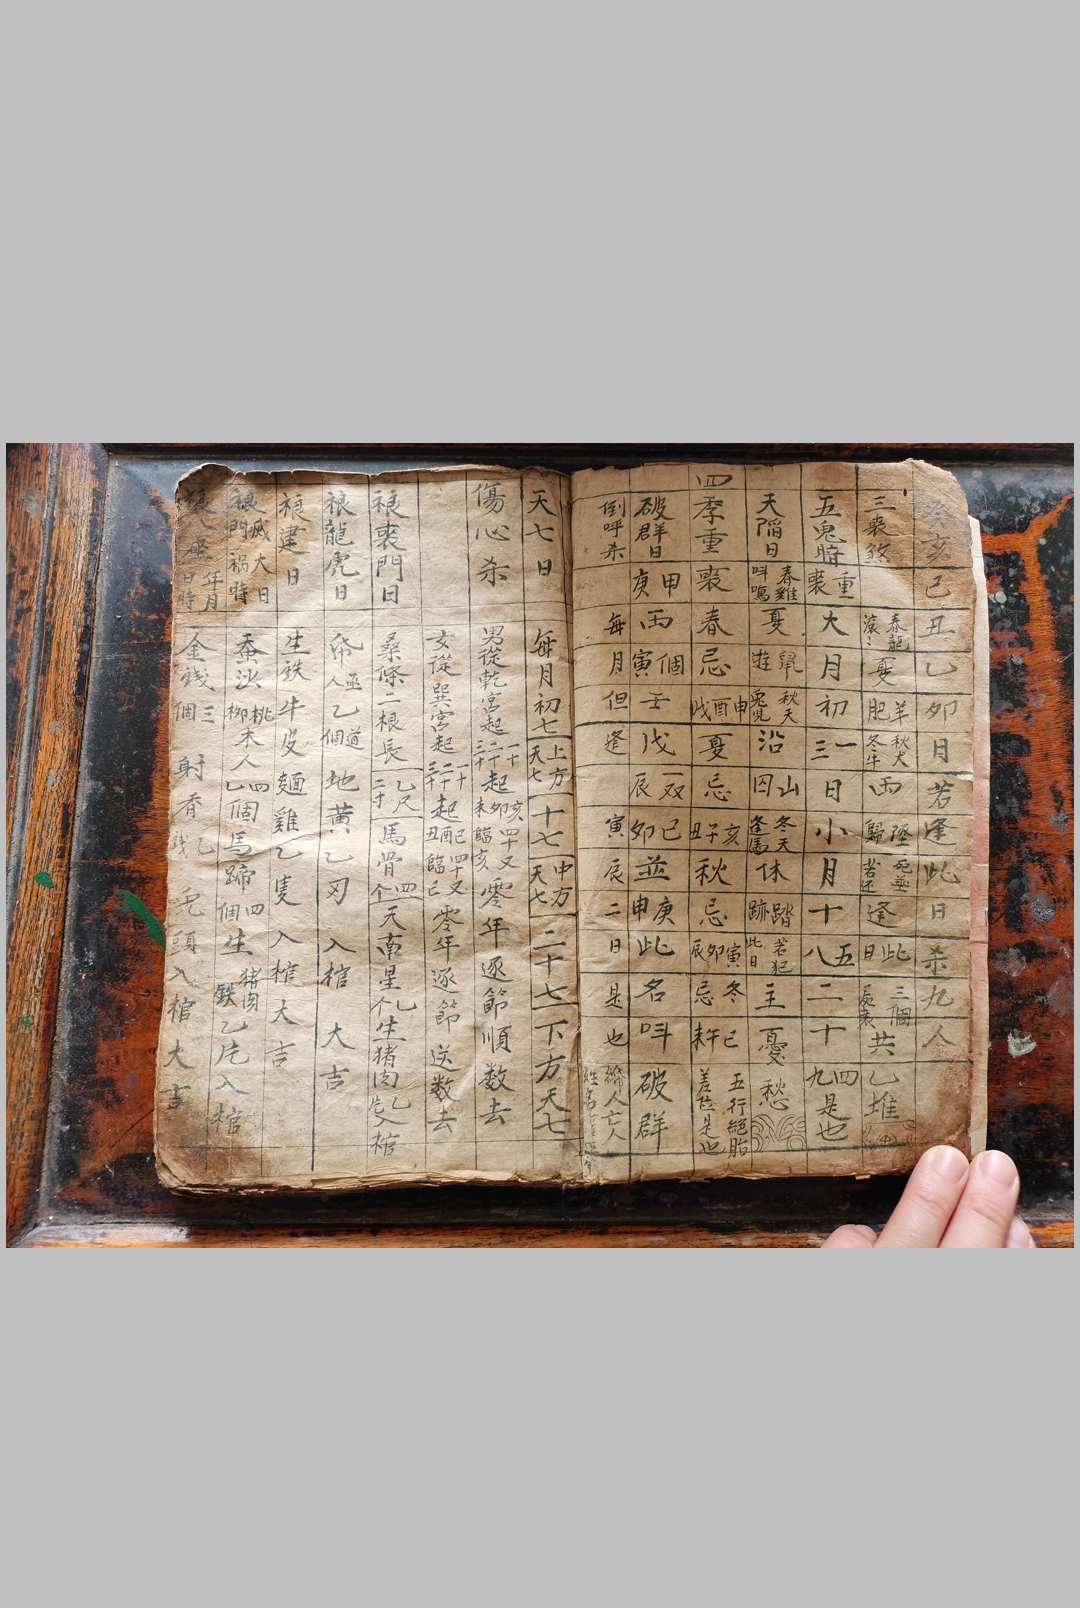 亥己丑乙卯日若逢此日杀九人
三喪煞 春龍滾滾夏羊肥秋犬冬牛两歸 逢此日 三個 共乙堆
五鬼時重喪 大月初一三日小月十五八二十四九是也
天瘟日 春雞叫鳴夏鼠遊 秋天 沿山囚冬天逢馬休踏跡若犯此日主憂愁
四季重喪 春忌申酉戌夏忌亥子丑秋忌寅卯辰冬忌巳午未 五行絕胎 是也
破群日 庚甲两個寅壬戊一双辰己卯並庚申此名叫破群
倒呼杀 每月但逢寅辰二日是也
天七日 每月初七上方天七十七中方天七二十七下方天七
傷心杀 男從乾宮起一十二十三十起亥卯未四十又臨亥零年逐節順数去
女從巽宮起一十二十三十起巳酉丑四十又臨巳零年逐節送数去
禳喪門日 桑條二根長乙尺二寸馬骨四个天南星乙个生猪肉乙片入棺
禳龍虎日 帋人乙個 地黄乙刃入棺大吉
禳建日 生铁牛皮麵雞乙隻入棺大吉
禳滅門大禍日時 蚕沙桃柳木人四個馬蹄四個生铁猪肉乙片入棺
年月日時 金錢三個射香乙戔 頭入棺大吉